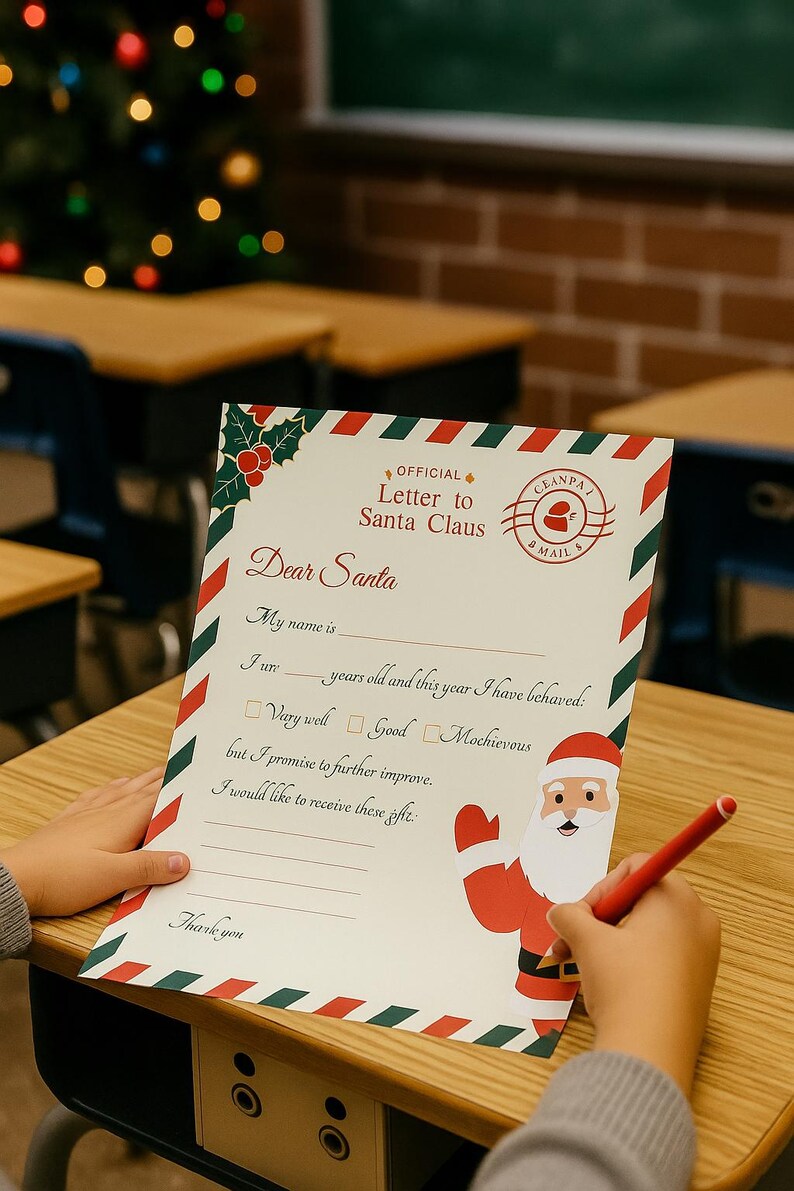 OFFICIAL
Letter to
Santa Claus
CEANPA1
BMAIL$
Dear Santa
My name is
I ure years old and this year I have behaved:
Vary well Good Mochievous
but I promise to further improve.
I would like to receive these
Thank you